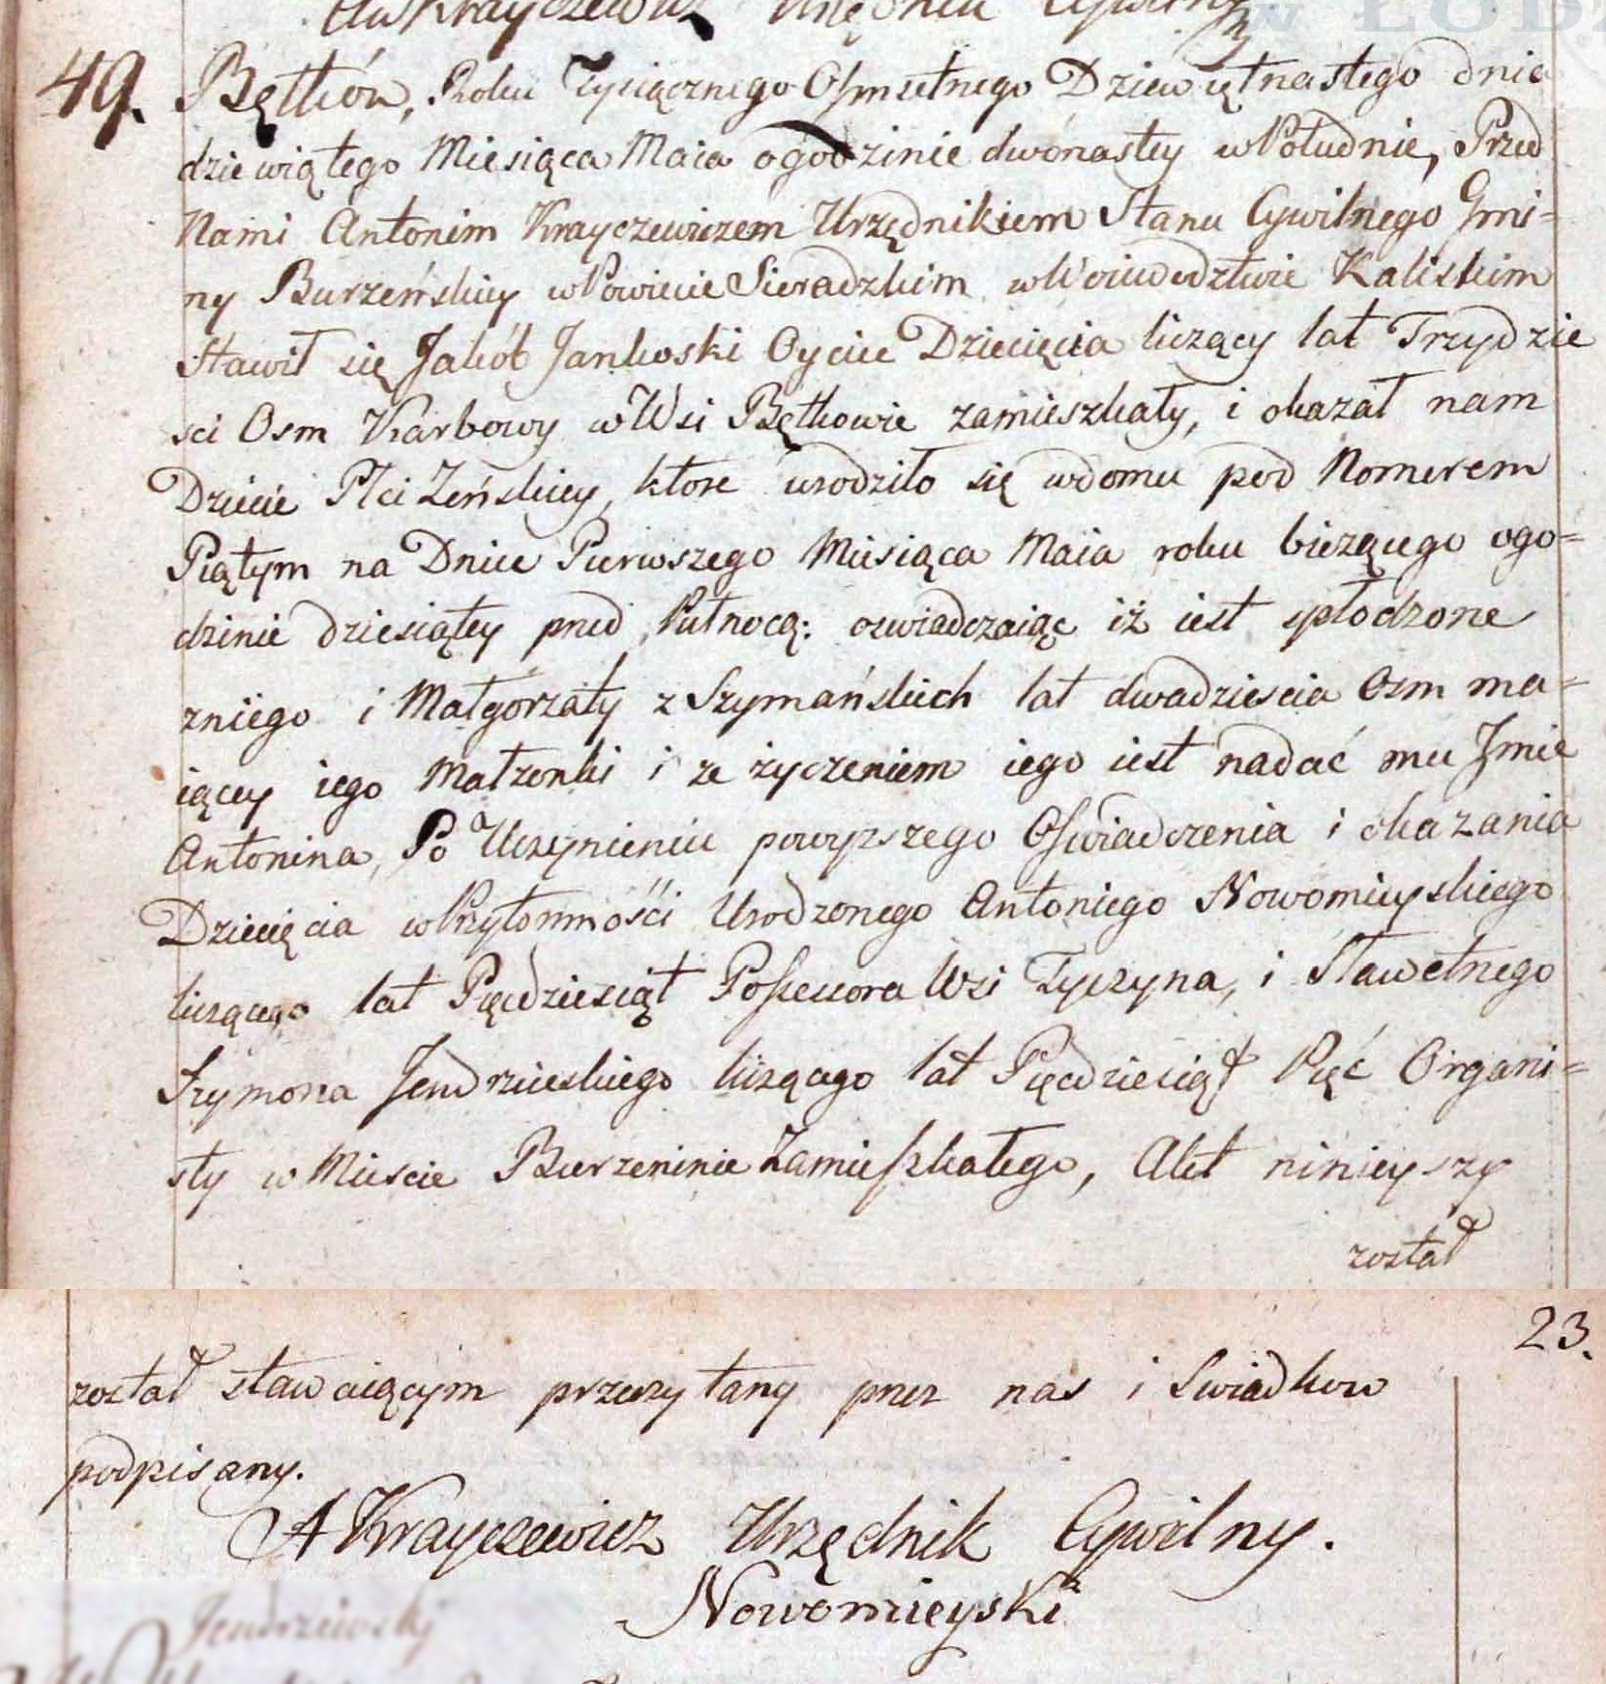 49. Bętków, Roku Tysiącznego Osmsetnego Dziewiętnastego dnia
dziewiątego Miesiąca Maia o godzinie dwónastey w Południe, Przed
Nami Antonim Krayczewiczem Urzędnikiem Stanu Cywilnego Gmi=
ny Burzeńskiey w Powiecie Sieradzkim w Woiewodztwie Kaliskim
Stawił się Jakób Jankoski Oyciec Dziecięcia liczący lat Trzydzie
sci Osm Karbowy w Wsi Bętkowie zamieszkały, i okazał nam
Dziecie Płci Zeńskiey, ktore urodziło się w domu pod Nomerem
Piątym na Dniu Pierwszego Miesiąca Maia roku bieżącego o go=
dzinie dziesiątey przed Pułnocą: oswiadczaiąc iż iest spłodzone
z niiego i Małgorzaty z Szymańskich lat dwadziescia Osm ma=
iącey iego Matzonki i ze życzeniem iego iest nadać mu Jmie
Antonina, Po Uczynieniu powyzszego Oswiadczenia i okazania
Dziecięcia w Przytomności Urodzonego Antoniego Nowomieyskiego
liczącego lat Pięcdziesiąt Possessora Wsi Tyczyna, i Sławetnego
Szymona Jendrzieskiego liczącego lat Pięcdziesiąt Pięć Organi=
sty w Miescie Burzeninie Zamieszkałego, Akt ninieyszy
został
23.
został stawaiącym przeczytany przez nas i Swiadkow
podpisany.
A Krayczewicz Urzędnik Cywilny.
Nowomieyski
Jendrziewski